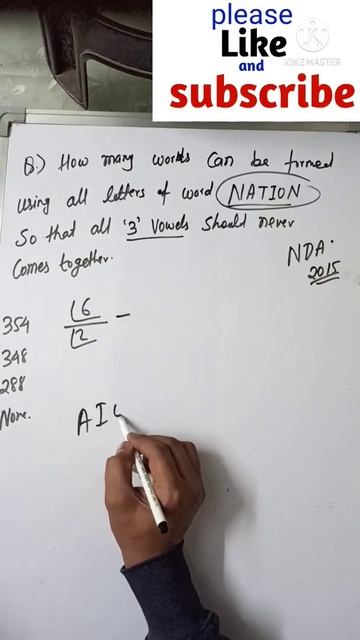 please
Like
and
subscribe
KINEMASTER
Q.) How many words can be formed
using all letters of word NATION
So that all '3' Vowels should never
Comes together.
NDA.
2015
354
348
288
None.
6
2
—
AI